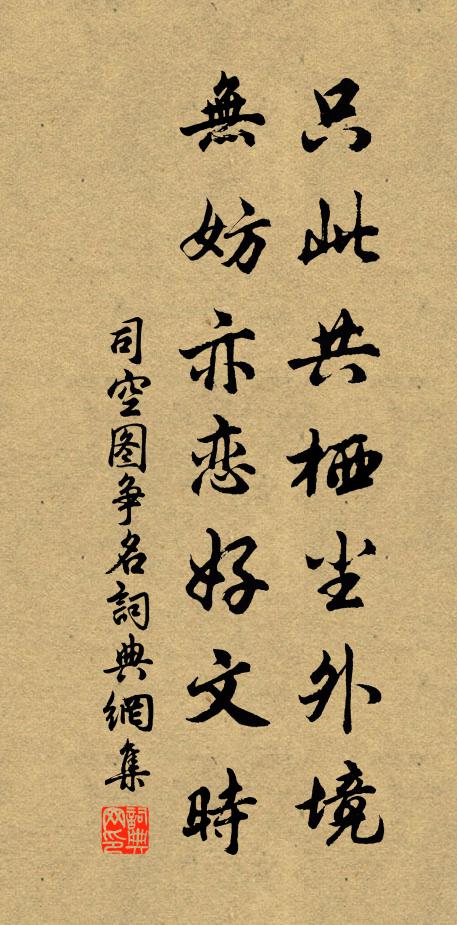 只此共栖尘外境
無妨亦恋好文時
司空图争名詞典網集
詞典網印